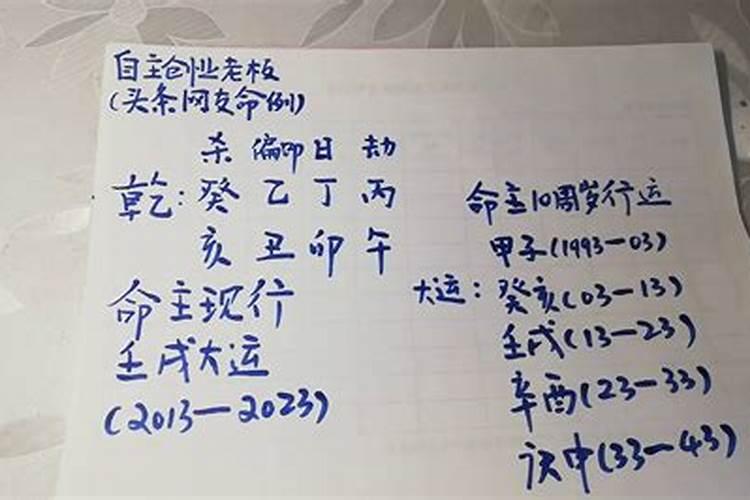 自主创业老板
(头条网友命例)
杀 偏印 日 劫
乾: 癸 乙 丁 丙
亥 丑 卯 午
命主现行
壬戌大运
(2013—2023)
命主10周岁行运
甲子(1993—03)
大运: 癸亥(03—13)
壬戌(13—23)
辛酉(23—33)
庚申(33—43)